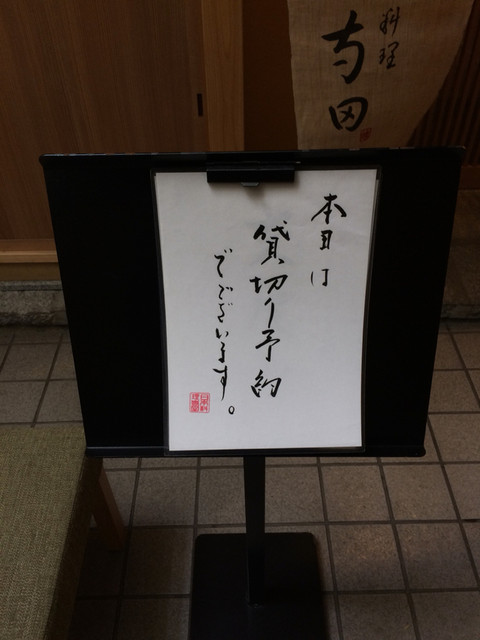 料理
本日は
貸切り予約
でございます。